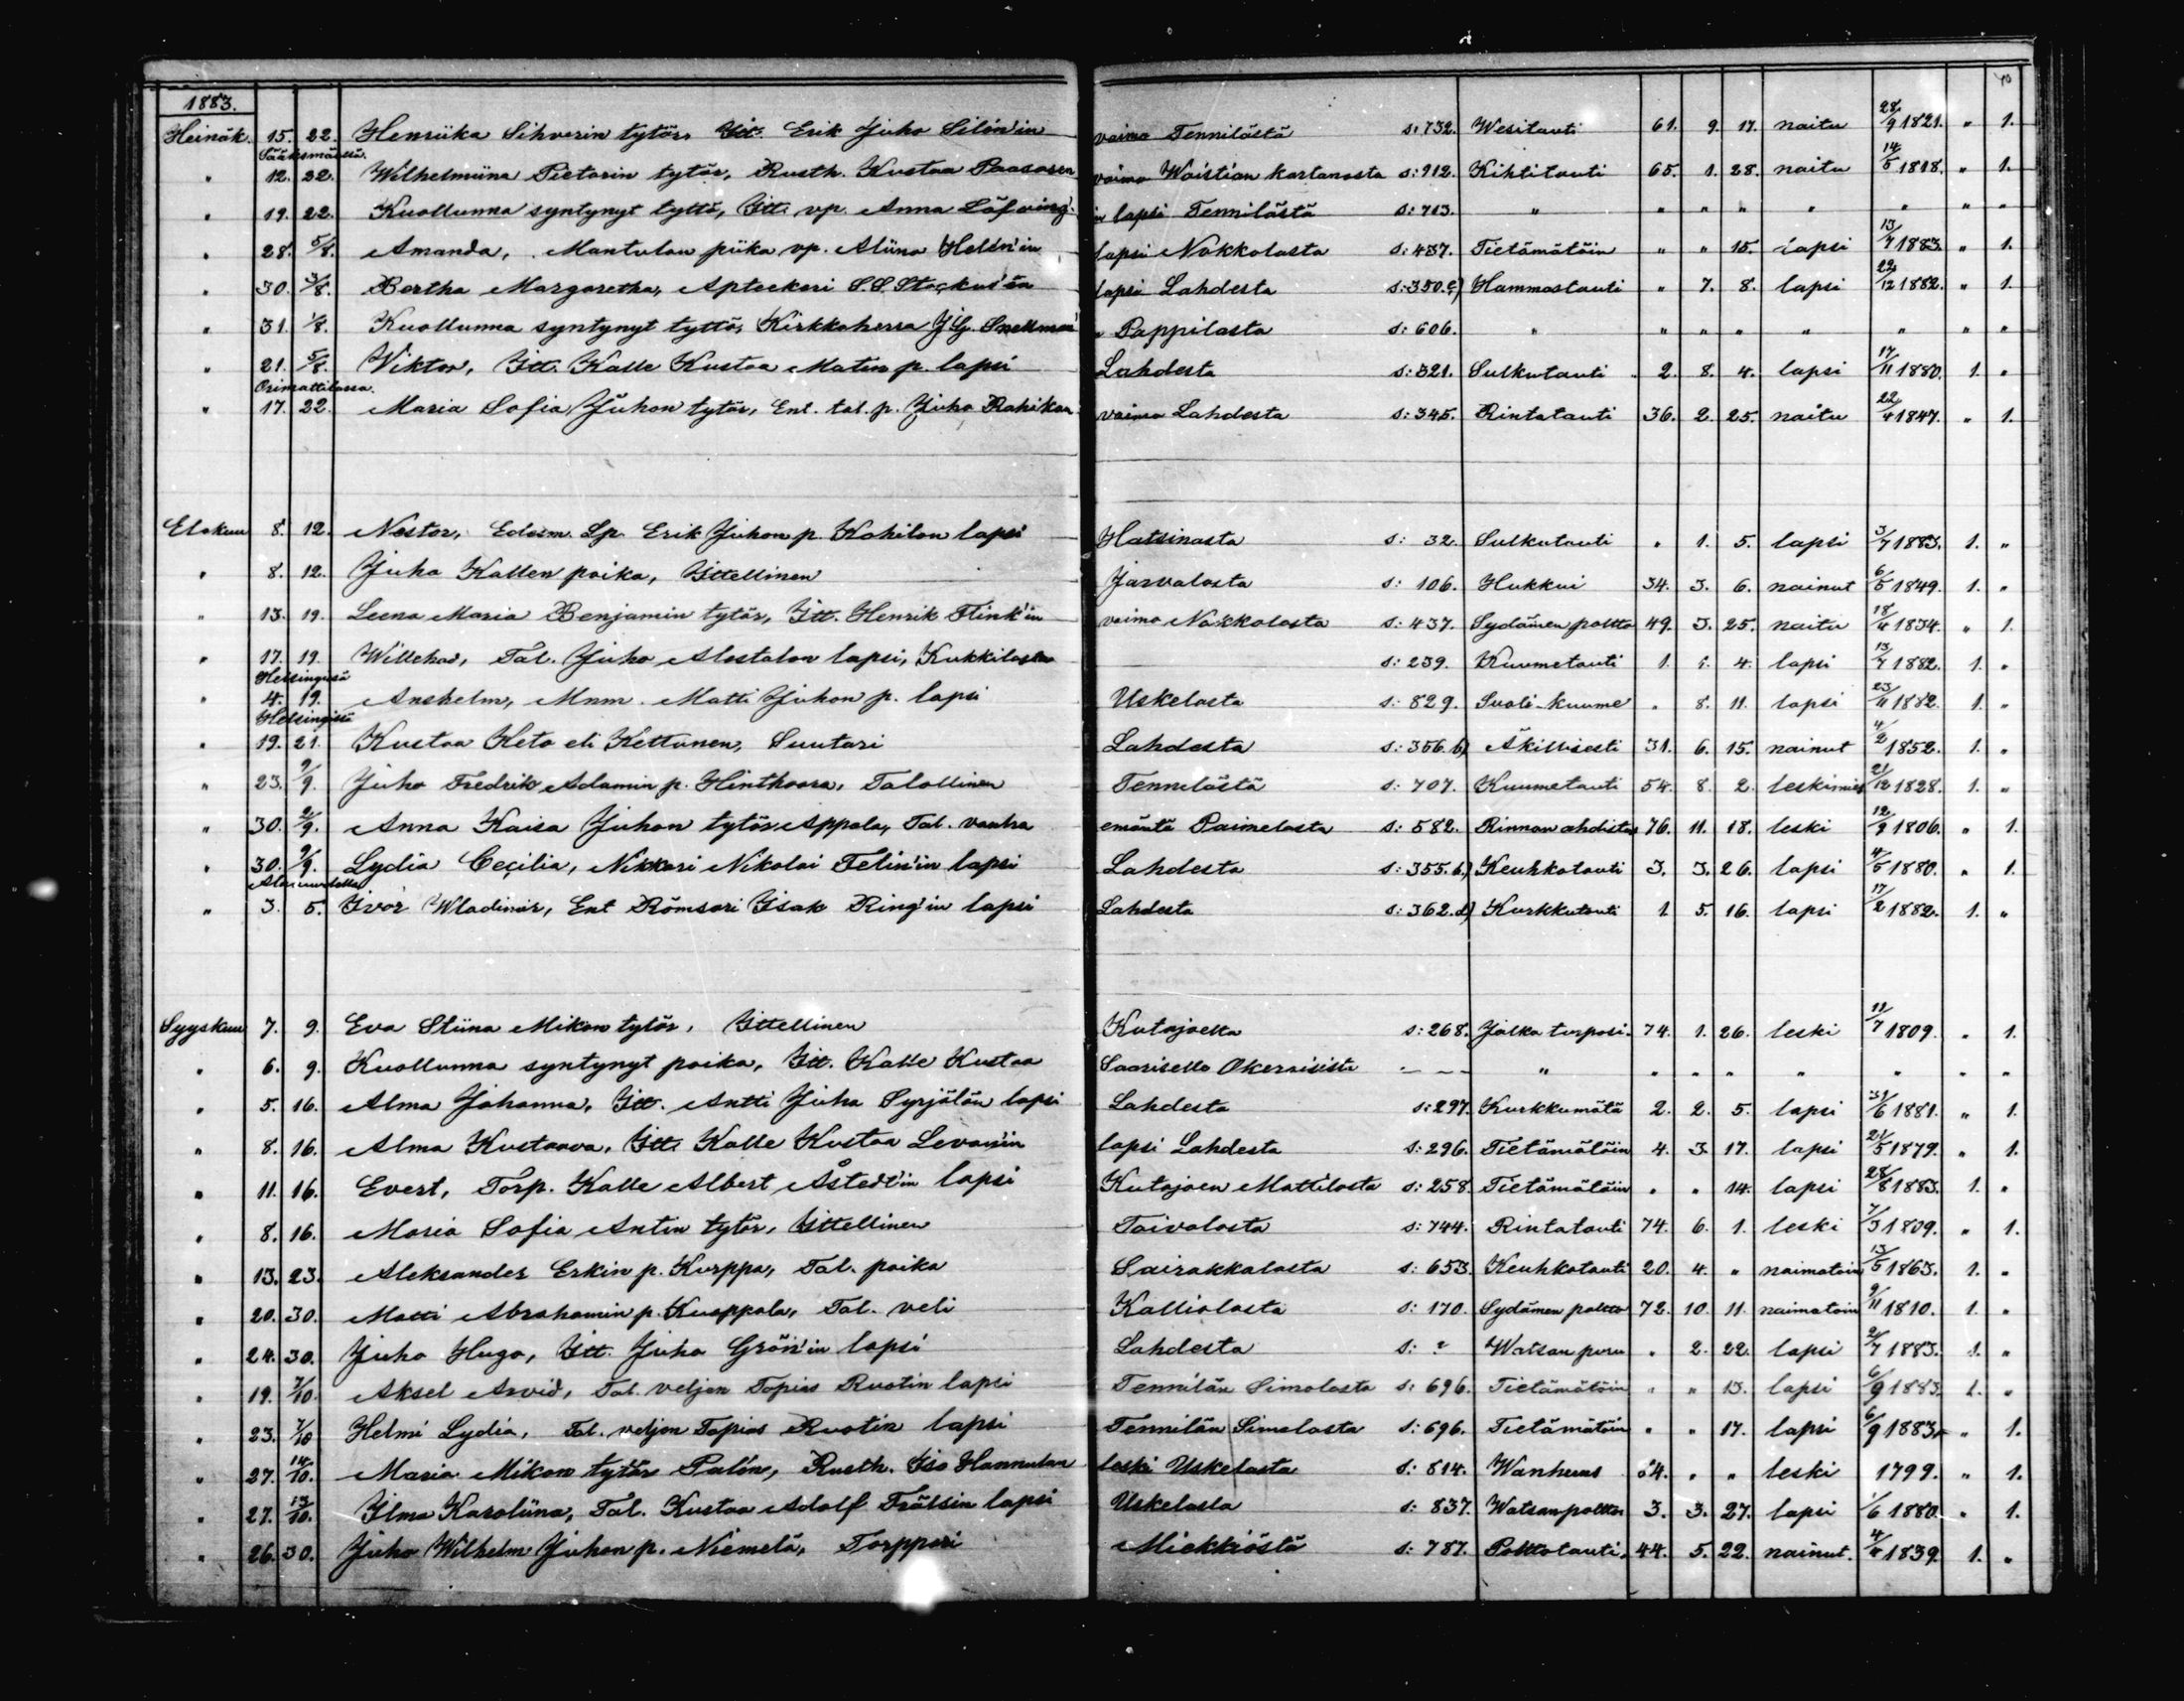 40
1883.
Heinäk. 15. 22. Henriika Sihverin tytär, Itt. Erik Juho Silén'in vaimo Tennilästä s: 732. Wesitauti 61. 9. 17. naitu 28/9 1821. " 1.
Sääksmäellä.
" 12. 22. Wilhelmiina Pietarin tytär, Rusth. Kustaa Paasosen vaimo Woistian kartanosta s: 912. Kihtitauti 65. 1. 28. naitu 14/5 1818. " 1.
" 19. 22. Kuollunna syntynyt tyttö, Itt. vp. Anna Löfving'in lapsi Tennilästä s: 713. " " " " " " " "
" 28. 5/8. Amanda, Mantulan piika vp. Aliina Helén'in lapsi Nokkolasta s: 437. Tietämätöin " " 15. lapsi 13/7 1883. " 1.
" 30. 3/8. Bertha Margaretha, Apteekari S.S. Stockus'en lapsi Lahdesta s: 350.c) Hammastauti " 7. 8. lapsi 22/12 1882. " 1.
" 31. 1/8. Kuollunna syntynyt tyttö, Kirkkoherra J.G. Snellman' Pappilasta s: 606. " " " " " " " "
" 21. 5/8. Viktor, Itt. Kalle Kustaa Matin p. lapsi Lahdesta s: 321. Sulkutauti 2. 8. 4. lapsi 17/11 1880. 1. "
Orimattilassa.
" 17. 22. Maria Sofia Juhon tytär, Ent. tal. p. Juho Rahikan vaimo Lahdesta s: 345. Rintatauti 36. 2. 25. naitu 22/4 1847. " 1.
Elokuu 8. 12. Nestor, Edesm. Lp. Erik Juhon p. Kohilan lapsi Hatsinasta s: 32. Sulkutauti " 1. 5. lapsi 3/7 1883. 1. "
" 8. 12. Juho Kallen poika, Ittellinen Järvalasta s: 106. Hukkui 34. 3. 6. nainut 6/5 1849. 1. "
" 13. 19. Leena Maria Benjamin tytär, Itt. Henrik Flink'in vaimo Nokkolasta s: 437. Sydämen poltto 49. 3. 25. naitu 18/4 1834. " 1.
" 17. 19. Willehad, Tal. Juho Alostalon lapsi, Kukkilasta s: 239. Kuumetauti 1. 1. 4. lapsi 13/7 1882. 1. "
Helsingissä
" 4. 19. Anshelm, Mnm. Matti Juhon p. lapsi Uskelasta s: 829. Suoli-kuume " 8. 11. lapsi 23/11 1882. 1. "
Helsingissä
" 19. 21. Kustaa Keto eli Kettunen, Suutari Lahdesta s: 356.b) Äkillisesti 31. 6. 15. nainut 4/2 1852. 1. "
" 23. 9/9. Juho Fredrik Adamin p. Hinthaara, Talollinen Tennilästä s: 707. Kuumetauti 54. 8. 2. leskimies 21/12 1828. 1. "
" 30. 2/9. Anna Kaisa Juhon tytär Appala, Tal. vanha emäntä Paimelasta s: 582. Rinnan ahdistus 76. 11. 18. leski 12/9 1806. " 1.
" 30. 9/9. Lydia Cecilia, Nikkari Nikolai Felin'in lapsi Lahdesta s: 355.b) Keuhkotauti 3. 3. 26. lapsi 4/5 1880. " 1.
" 3. 5. Ivor Wladimir, Ent Römsari Isak Ring'in lapsi Lahdesta s: 362.d) Kurkkutauti 1. 5. 16. lapsi 17/2 1882. 1. "
Syyskuu 7. 9. Eva Stiina Mikon tytär, Ittellinen Kutajoelta s: 268. Jalka turposi. 74. 1. 26. leski 11/7 1809. " 1.
" 6. 9. Kuollunna syntynyt poika, Itt. Kalle Kustaa Saarisello Okeroisista - - - " " " " " " " "
" 5. 16. Alma Johanna, Itt. Antti Juha Syrjälän lapsi Lahdesta s: 297. Kurkkumätä 2. 2. 5. lapsi 31/6 1881. " 1.
" 8. 16. Alma Kustaava, Itt. Kalle Kustaa Levan'in lapsi Lahdesta s: 296. Tietämätöin 4. 3. 17. lapsi 21/5 1879. " 1.
" 11. 16. Evert, Torp. Kalle Albert Åstedt'in lapsi Kutajoen Mattilasta s: 258. Tietämätöin " " 14. lapsi 28/8 1883. 1. "
" 8. 16. Maria Sofia Antin tytär, Ittellinen Toivolasta s: 744. Rintatauti 74. 6. 1. leski 7/3 1809. " 1.
" 13. 23. Aleksander Erkin p. Kurppa, Tal. poika Sairakkalasta s: 653. Keuhkotauti 20. 4. " naimatoin 13/5 1863. 1. "
" 20. 30. Matti Abrahamin p. Kuappala, Tal. veli Kalliolasta s: 170. Sydämen poltto 72. 10. 11. naimatoin 9/11 1810. 1. "
" 24. 30. Juho Hugo, Itt. Juha Grön'in lapsi Lahdesta s: ? Watsan puru " 2. 22. lapsi 2/7 1883. 1. "
" 19. 7/10. Aksel Arvid, Tal. veljen Topias Ruotin lapsi Tennilän Simolasta s: 696. Tietämätöin " " 13. lapsi 6/9 1883. 1. "
" 23. 7/10 Helmi Lydia, Tal. veljen Topias Ruotin lapsi Tennilän Simolasta s: 696. Tietämätöin " " 17. lapsi 6/9 1883. " 1.
" 27. 14/10. Maria Mikon tytär Palén, Rusth. Iso Hannulan leski Uskelasta s: 814. Wanhuus 84. " " leski 1799. " 1.
" 27. 13/10. Ilma Karoliina, Tal. Kustaa Adolf Frälsin lapsi Uskelasta s: 837. Watsanpoltto 3. 3. 27. lapsi 1/6 1880. " 1.
" 26. 30. Juho Wilhelm Juhon p. Niemelä, Torppari Miekkiöstä s: 787. Polttotauti, 44. 5. 22. nainut. 4/4 1839. 1. "